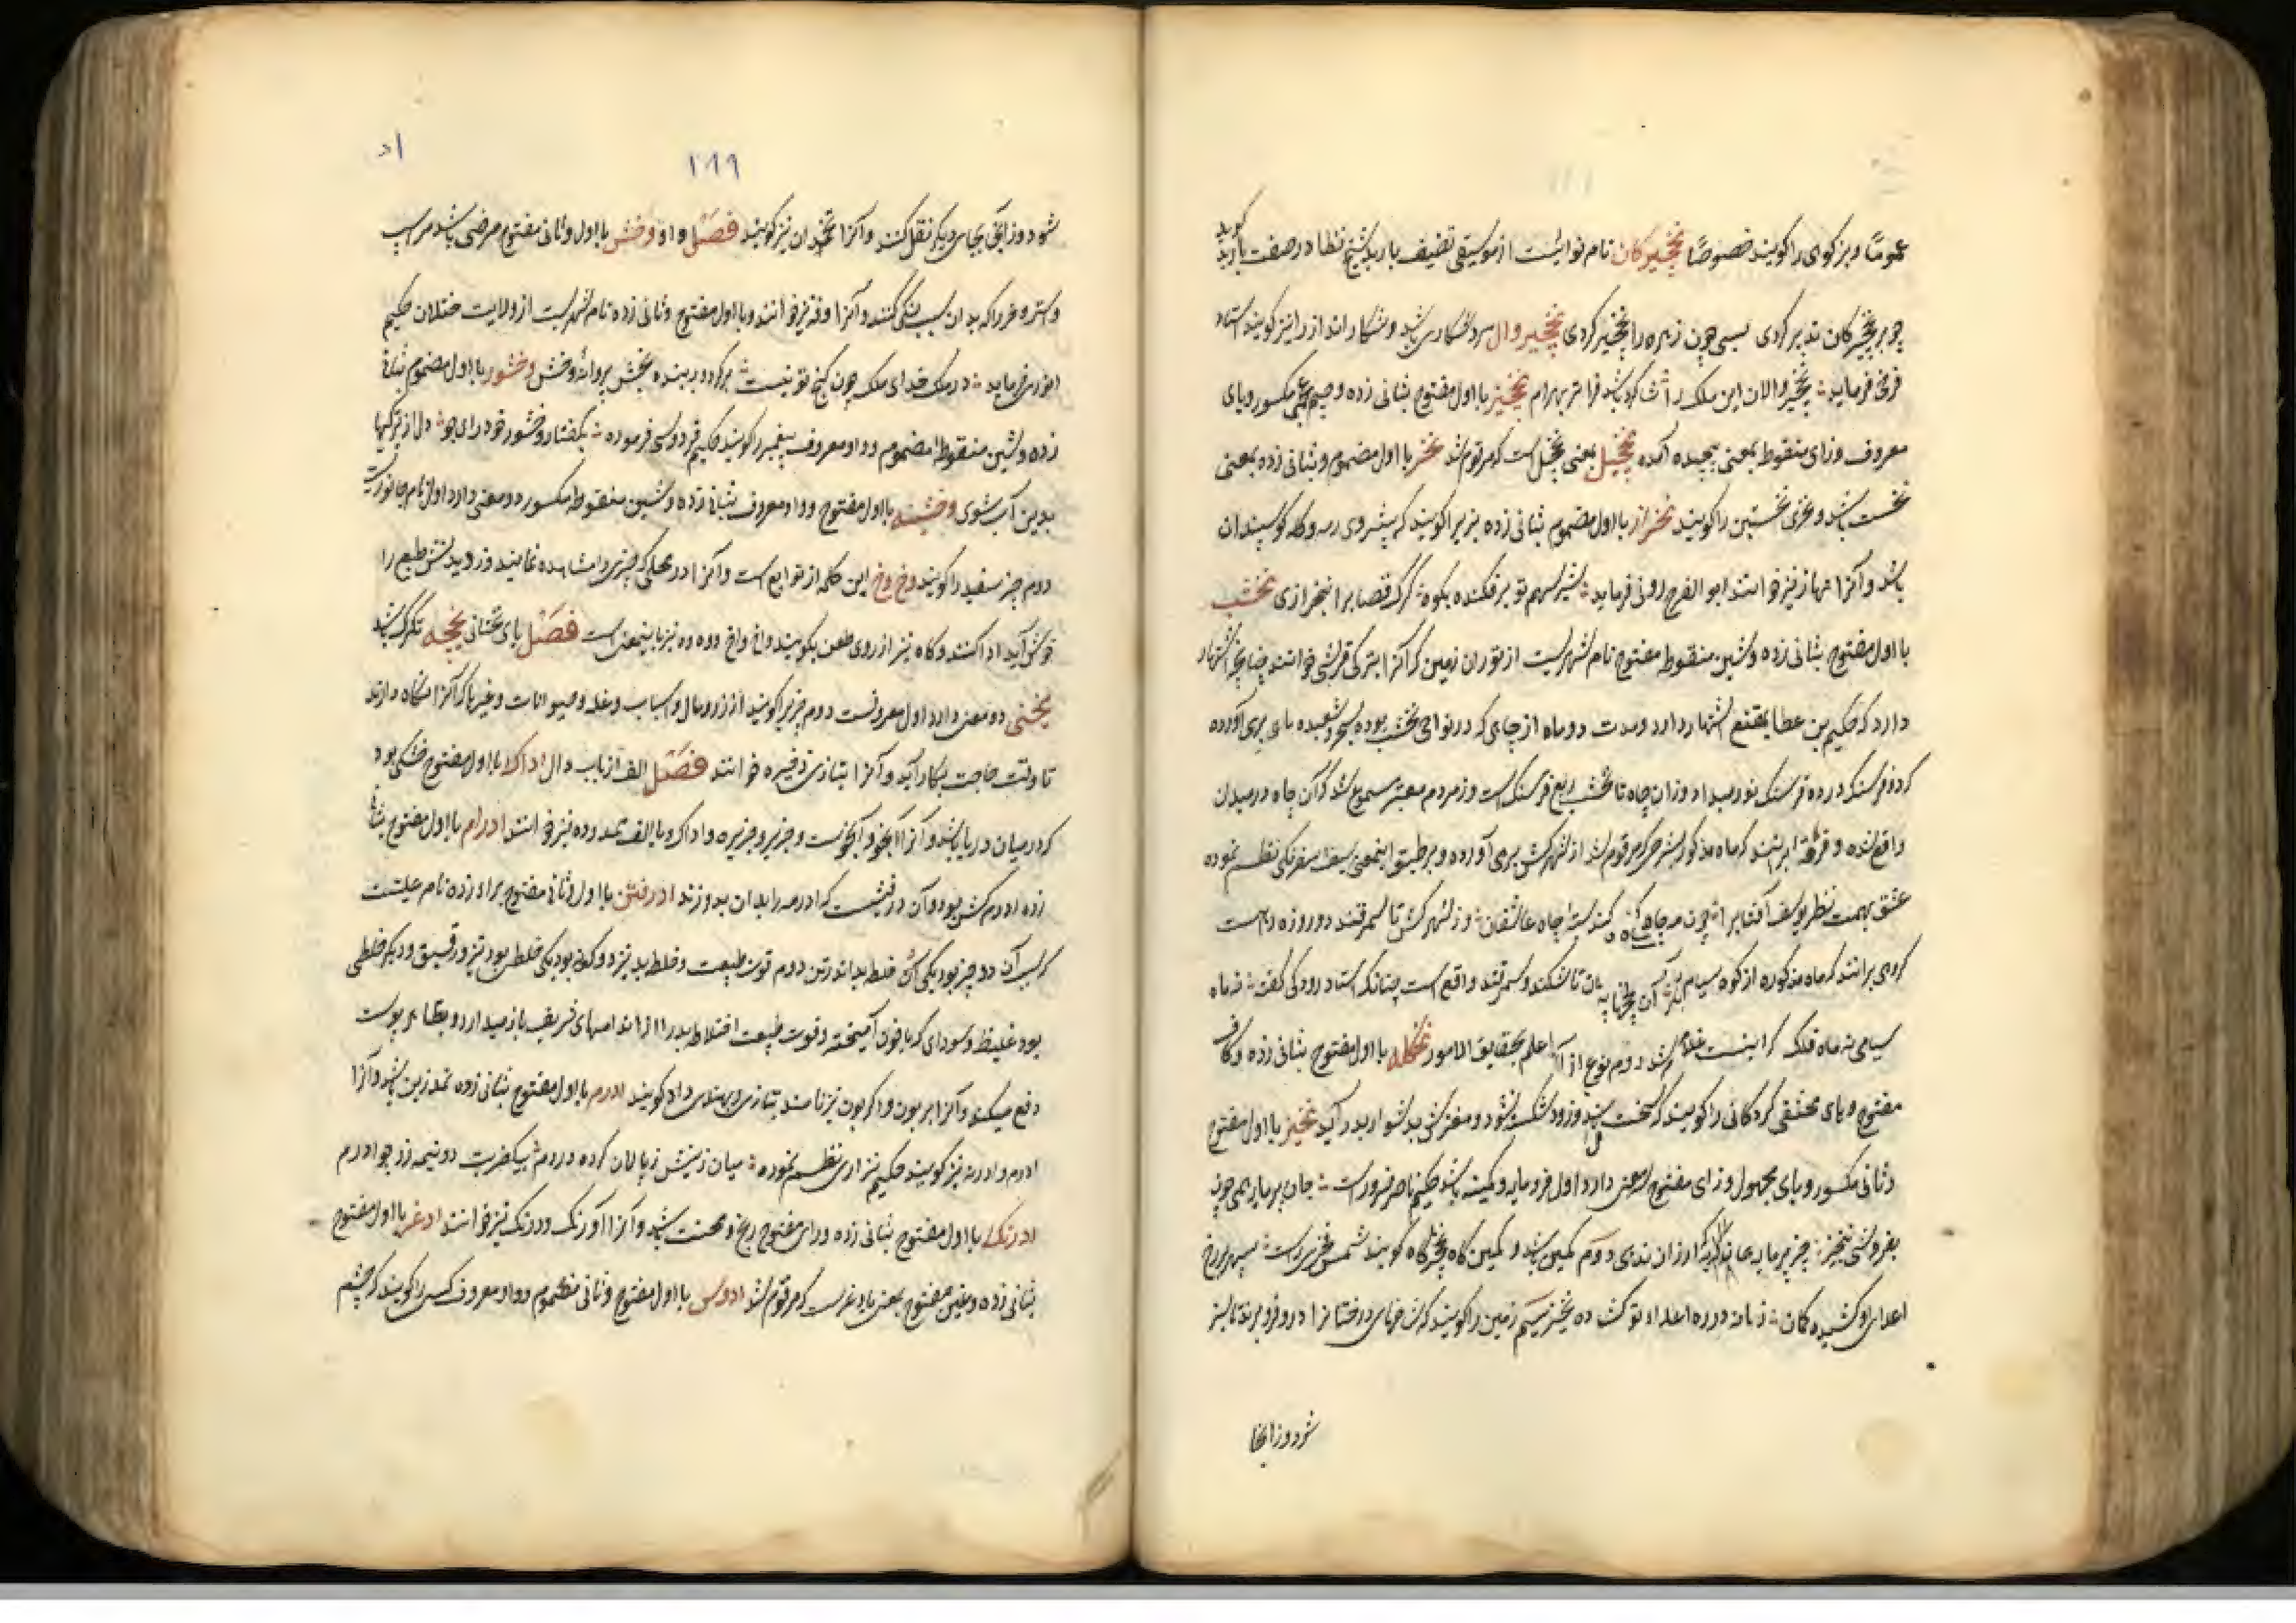 عموماً و بز کوهی را گویند خصوصاً نخچیرگان نام نوائیست از موسیقی تصنیف باربد شیخ نظامی در صفت باربد گوید
چو بر نخچیرگان تدبیر کردی بسی چون زهره را نخچیر کردی نخچیر وال مرد شکاری باشد و شکار انداز را نیز گویند استاد
فرخی فرماید نخچیر والان این ملک را شاگرد باشد فزون تر بهرام نخچیز با اول مفتوح بثانی زده و جیم عجمی مکسور و یای
معروف و زای منقوطه بمعنی پیچیده آمده نخچیل بمعنی نخچل است که مرقوم شد نخر با اول مضموم و بثانی زده بمعنی
نخست باشد و نخری نخستین را گویند نخراز با اول مضموم بثانی زده بزیرا گویند که پیشروی رمه و گله گوسپندان
باشد و آنرا نهاز نیز خوانند ابو الفرج رونی فرماید شیر سهم تو برفکنده بکوه گرگ قصاب را نخرازی نخشب
با اول مفتوح بثانی زده و شین منقوطه مفتوح نام شهریست از توران زمین که آنرا بترکی قرشی خوانند چنانچه اشتهار
دارد که حکیم بن عطا بمقنع اشتهار دارد و مدت دو ماه از چاهی که در نواحی نخشب بوده بسحر و شعبده ماهی برمی آورده
که دو فرسنگ در دو فرسنگ نور میداد و از ان چاه تا نخشب ربع فرسنگ است و از مردم معتبر مسموع شد که آن چاه در میدان
واقع شده و فرقه بر اینند که ماه مذکور بنهجی که مرقوم شد از شهر کش برمی آورده و بر طبق اینمعنی سیف اسفرنگی نظم نموده
عشق بهمت نظر یوسف آفتاب را چون مه چاه کش کند بسته چاه عاشقان وز شهر کش تا سمرقند دو روزه راه است
گروهی برانند که ماه مذکوره از کوه سیام تاشکند و سمرقند واقع است چنانکه استاد رودکی گفته نه ماه
سیامی نه ماه فلک که اینست غلام اعلم بحقایق الامور نخکله با اول مفتوح بثانی زده و کاف
مفتوح و های مختفی گردکانی را گویند که سخت باشد و زود شکسته نشود و مغزش بدشوار بدر آید نخیز با اول مفتوح
و ثانی مکسور و یای مجهول و زای مفتوح سه معنی دارد اول فرومایه و کمینه باشد حکیم ناصر خسرو راست
بفروشی بنخیز چیز پر مایه ارزان ندهی دوم کمین باشد و کمین گاه را نخیز گاه گویند شمس فخری راست سپهر بر رخ
اعدای او کشیده کمان زمانه در ره اعداء تو گشاده نخیز سیم زمین را گویند که شاخهای درختان را در و فرو برند تا سبز
شود و از آنجا
شود و از آنجا بجای دیگر نقل کنند و آنرا تخمدان نیز گویند فصل واو وخش با اول و ثانی مفتوح مرضی باشد مر اسپ
و استر و خر را که بدان سبب لنگی کنند و آنرا وقره نیز خوانند و با اول مفتوح و ثانی زده نام شهریست از ولایت ختلان حکیم
انوری فرماید در ملک خدای ملک چون گنج تو نیست برگرد و ببنده بخش پروانه وخش وخشور با اول مضموم بثانی
زده و شین منقوطه مضموم و واو معروف پیغمبر را گویند حکیم فردوسی فرموده بگفتار وخشور خود راه جو دل از تیرگیها
بدین آب شوی وخشینه با اول مفتوح و واو معروف بثانی زده و شین منقوطه مکسور دو معنی دارد اول نام جانوریست
دوم چیز سفید را گویند وخ وخ این کلمه از توابع است و آنرا در محلی که چیزی را مشاهده نمایند و از دیدنش طبع را
خوش آید ادا کنند و گاه نیز از روی طعن بگویند واخ واخ و وه وه نیز باینمعنی است فصل یای تحتانی یخچه تگرگ باشد
یخنی دو معنی دارد اول معروفست دوم چیزیرا گویند از زر و مال و اسباب و غله و حیوانات و غیرها که آنرا نگاه دارند
تا وقت حاجت بکار آید و آنرا بتازی ذخیره خوانند فصل الف از باب دال اداک با اول مفتوح خشکی بود
که در میان دریا باشد و آنرا آبخو و آبخوست و جزیر و جزیره و اداک با الف ممدوده نیز خوانند ادرام با اول مفتوح بثانی
زده ادرم کش بود و آن درفشیست که ادرمه را بدان بدوزند ادرفش با اول و ثانی مفتوح براء زده نام علتیست
که سبب آن دو چیز بود یکی آنکه خلط بد اندر تن دوم قوت طبیعت و خلط بد نیز دو گونه بود یکی خلطی بود تیز و رقیق و دیگر خلطی
بود غلیظ و سودای که با خون آمیخته و قوت طبیعت اختلاط بد را از اندامهای شریف باز میدارد و بظاهر پوست
دفع میکند و آنرا بریون و اگریون نیز نامند بتازی و بهندی داد گویند ادرم با اول مفتوح بثانی زده نمد زین باشد و آنرا
ادرم و ادرمه نیز گویند حکیم نزاری نظم نموده میان زینش ز پالان کرده در دم بیکضربت دو نیمه زد چو ادرم
ادرنگ با اول مفتوح بثانی زده و رای مفتوح رنج و محنت باشد و آنرا آورنگ و درنگ نیز خوانند ادغر با اول مفتوح
بثانی زده و غین مفتوح بمعنی بادغر است که مرقوم شد ادوس با اول مفتوح و ثانی مضموم و واو معروف کسی را گویند که چشم
۱۸۹
اد